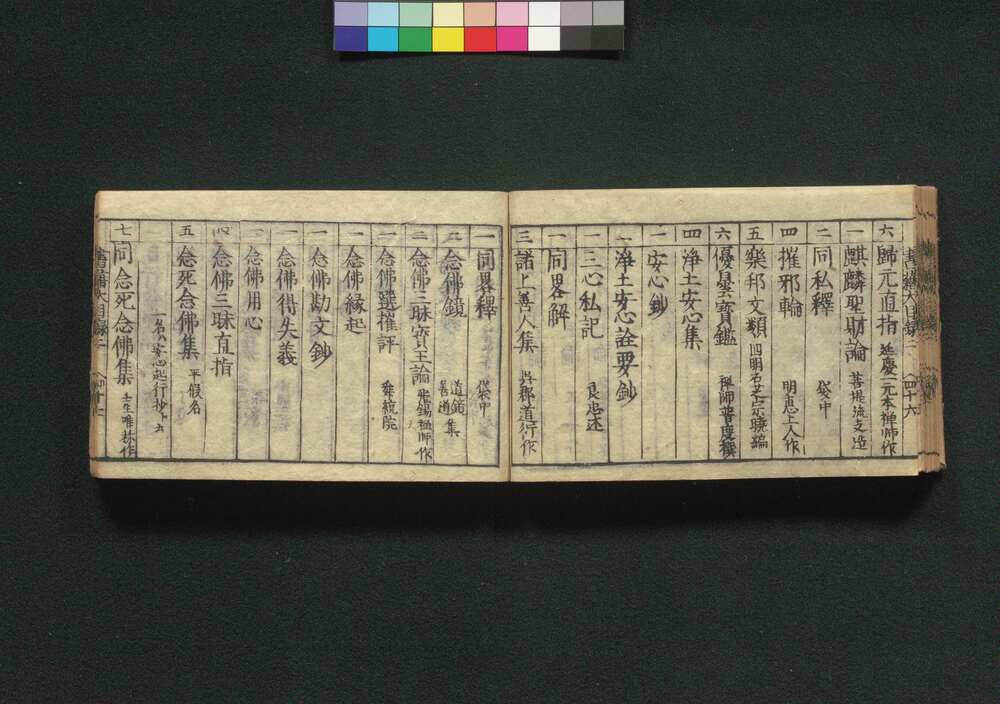 書籍大目録二 四十六
六 歸元直指 延慶一元本禅師作
一 麒麟聖財論 菩提流支造
二 同私釋 袋中
四 摧邪輪 明恵上人作
五 樂邦文類 四明石芝宗曉編
六 優曇寳鑑 禅師普度撰
四 浄土安心集
一 安心鈔
一 浄土安心詮要鈔
一 三心私記 良忠述
一 同畧解
三 諸上善人集 呉郡道衍作
一 同畧釋 袋中
念佛鏡 道鏡 善道 集
三 念佛三昧寳王論 飛錫禅師作
一 念佛選摧評
一 念佛縁起
一 念佛勘文鈔
一 念佛得失義
念佛用心
念佛三昧直指
五 念死念佛集 平假名
七 同念死念佛集
書籍大目録二